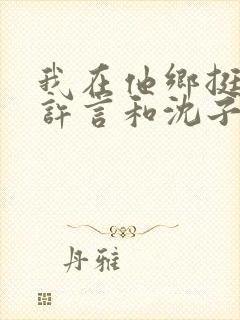 我在他鄉挺
許言和沈子
丹雅